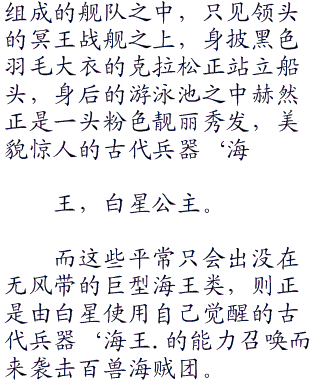 组成的舰队之中，只见领头
的冥王战舰之上，身披黑色
羽毛大衣的克拉松正站立船
头，身后的游泳池之中赫然
正是一头粉色靓丽秀发，美
貌惊人的古代兵器‘海
王，白星公主。
而这些平常只会出没在
无风带的巨型海王类，则正
是由白星使用自己觉醒的古
代兵器‘海王.的能力召唤而
来袭击百兽海贼团。